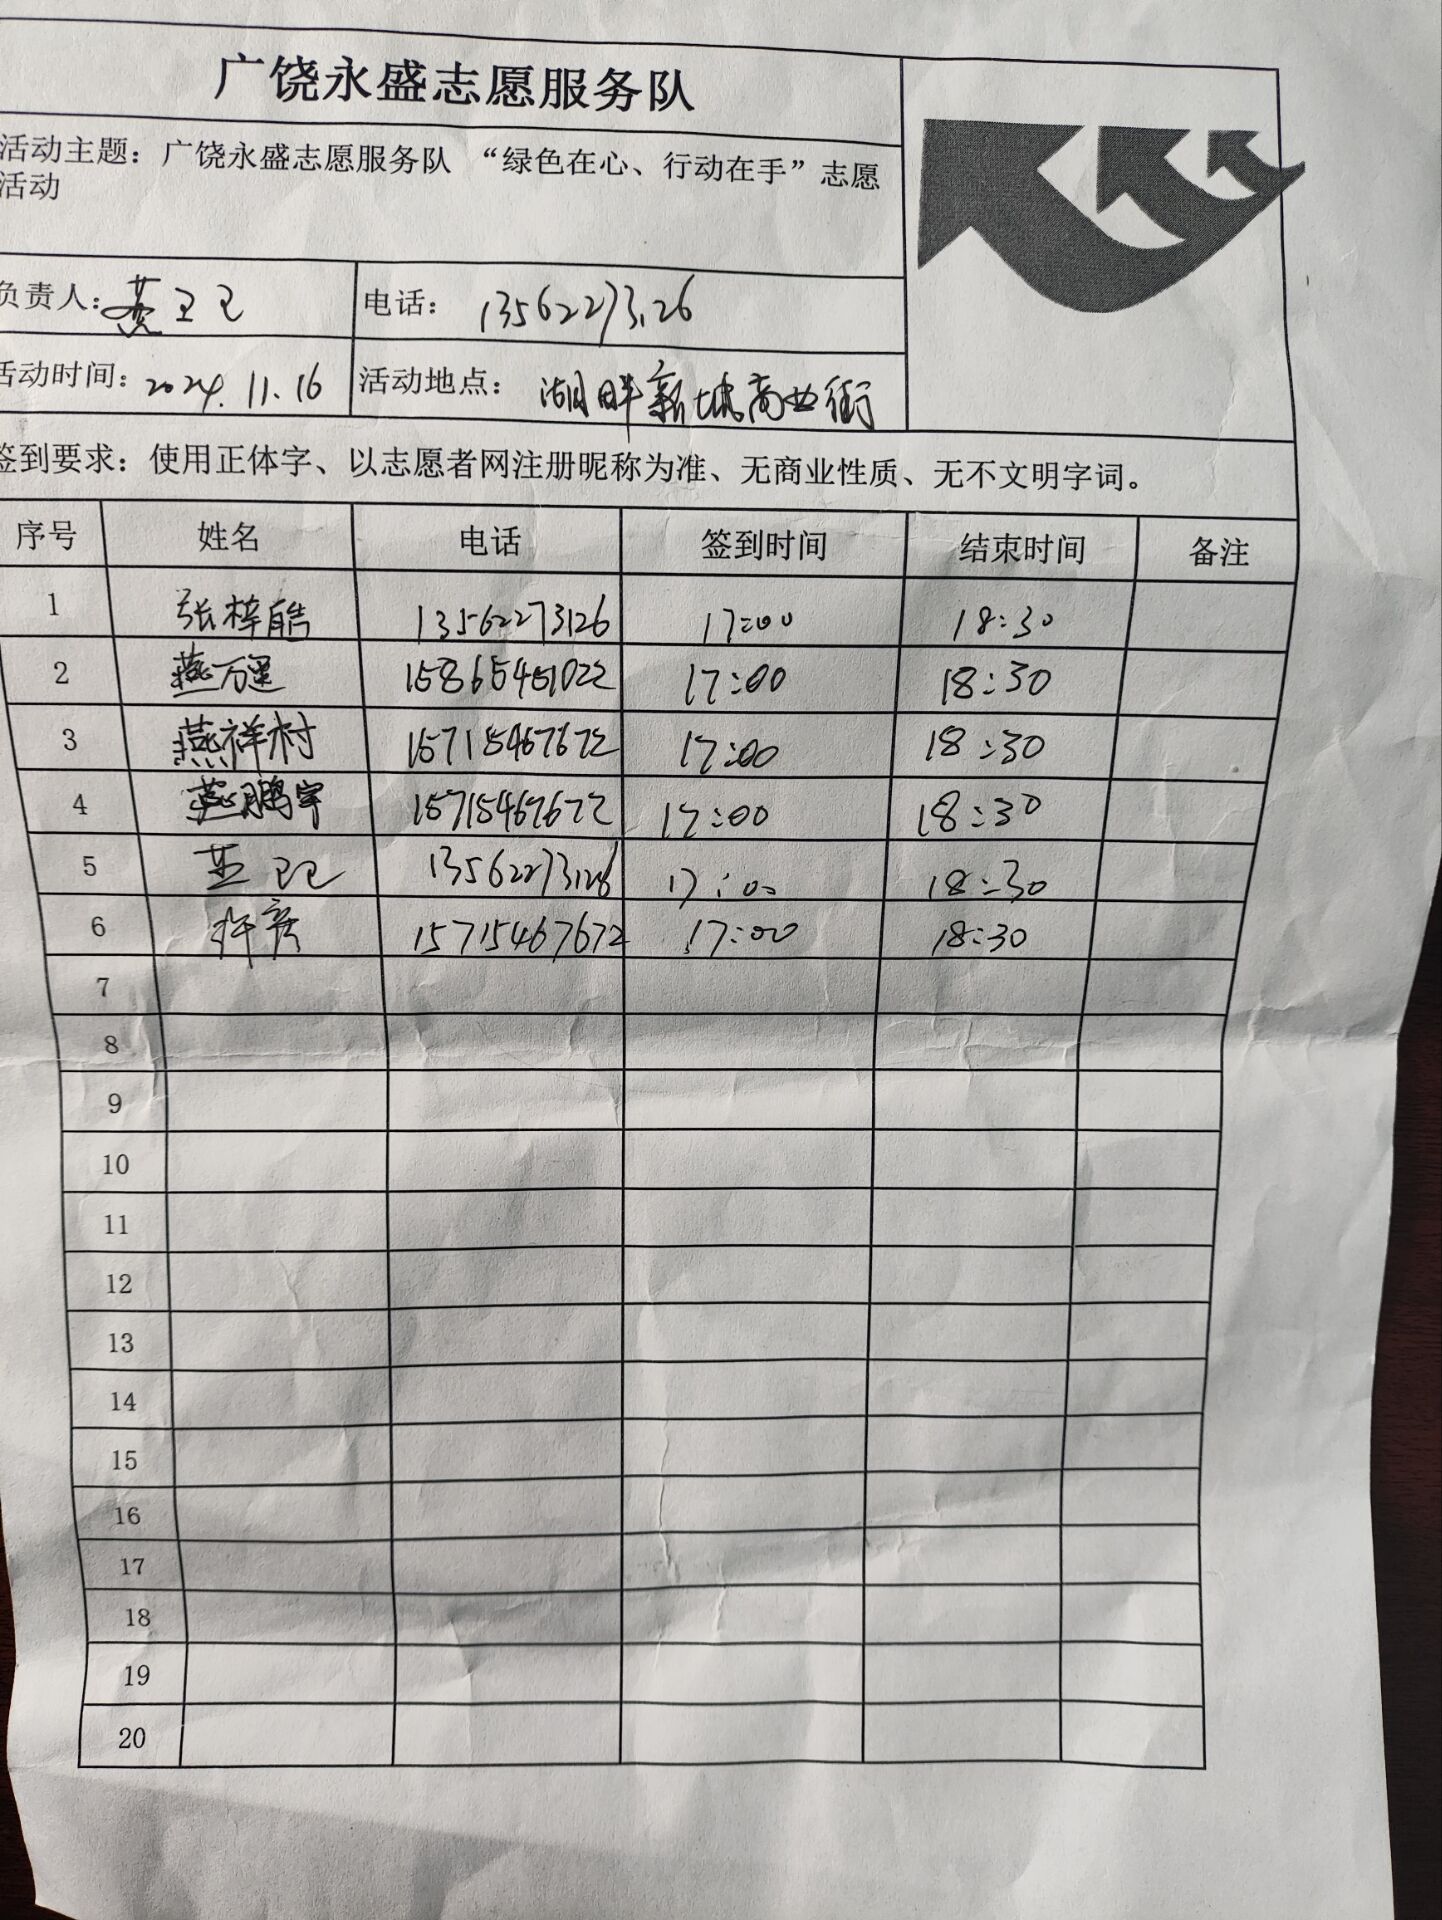 广饶永盛志愿服务队
活动主题：广饶永盛志愿服务队 “绿色在心、行动在手”志愿
活动
负责人： 电话： 13562273126
活动时间：2024.11.16 活动地点： 湖畔新城商业街
签到要求：使用正体字、以志愿者网注册昵称为准、无商业性质、无不文明字词。
序号 姓名 电话 签到时间 结束时间 备注
1 张梓皓 13562273126 17:00 18:30
2 燕万遥 15865451022 17:00 18:30
3 燕祥村 15715467672 17:00 18:30
4 燕鹏宇 15715467672 17:00 18:30
5 13562273126 17:00 18:30
6 15715467672 17:00 18:30
7
8
9
10
11
12
13
14
15
16
17
18
19
20